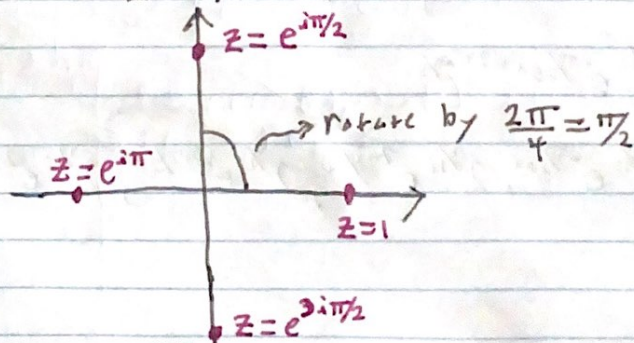 z = e^{iπ/2}
rotate by 2π/4 = π/2
z = e^{iπ}
z = 1
z = e^{3iπ/2}